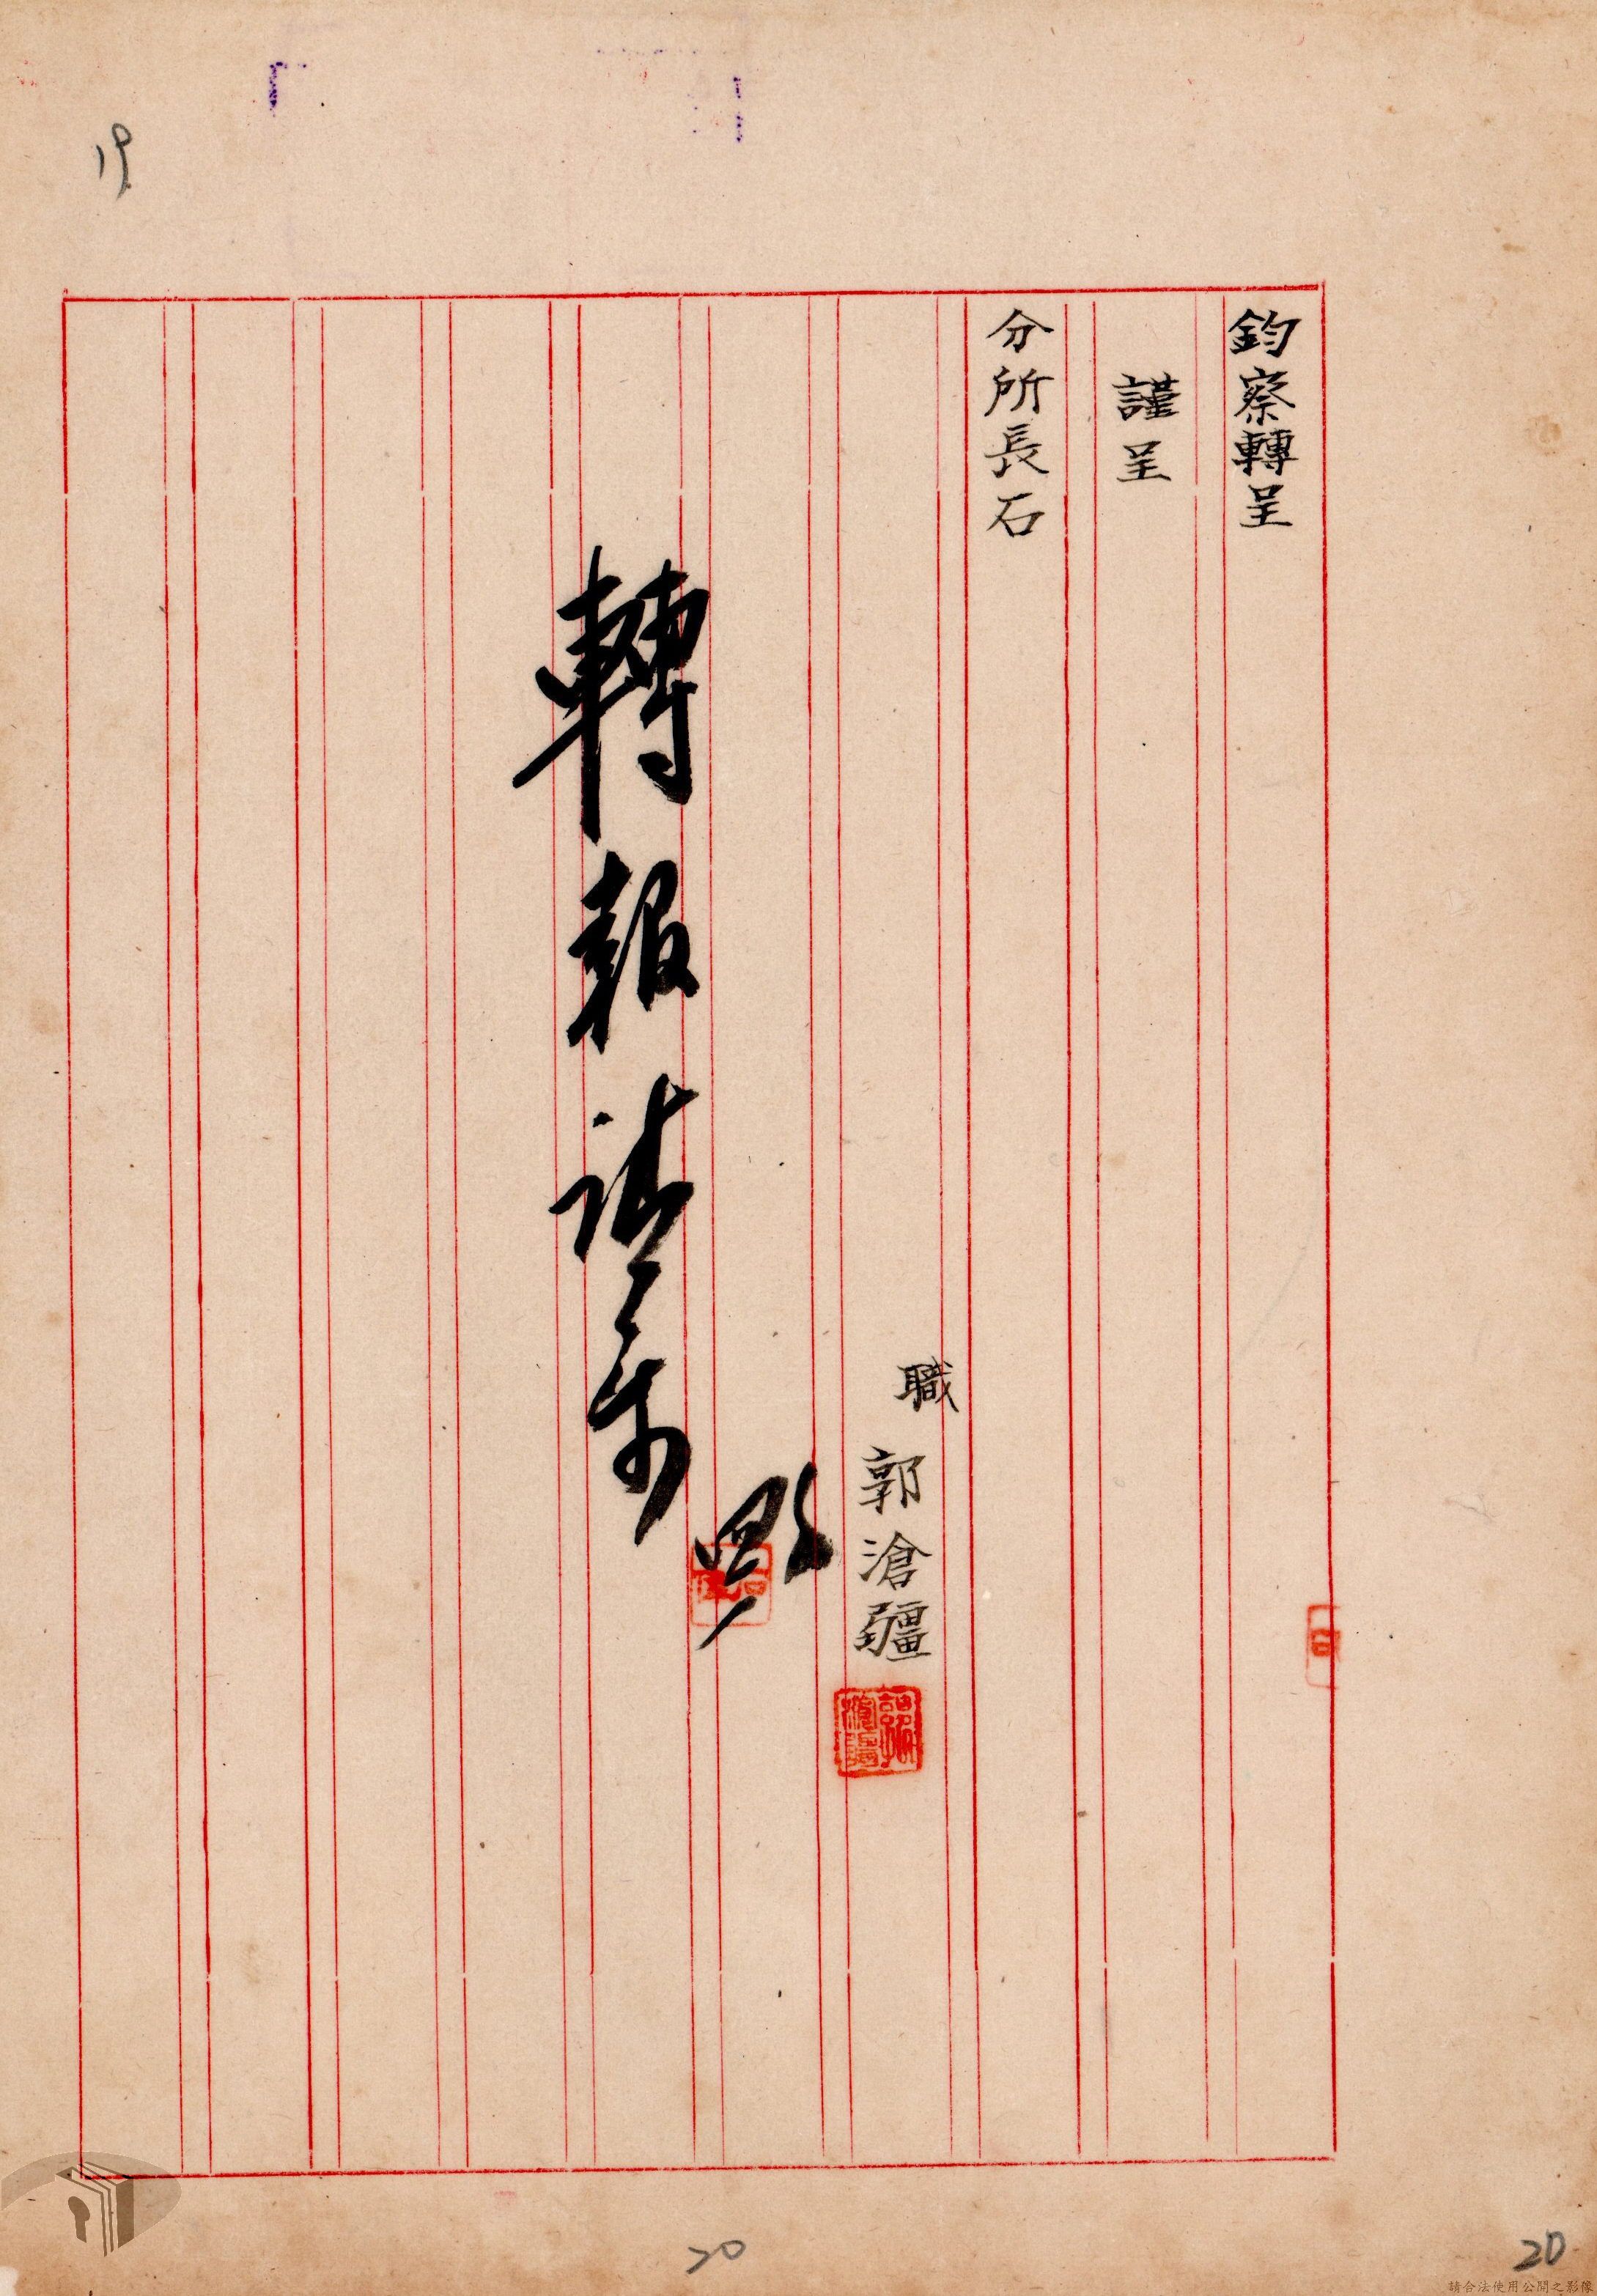 鈞察轉呈
謹呈
分所長石
職
郭滄疆
郭滄疆
轉報請
19
20
20
請合法使用公開之影像